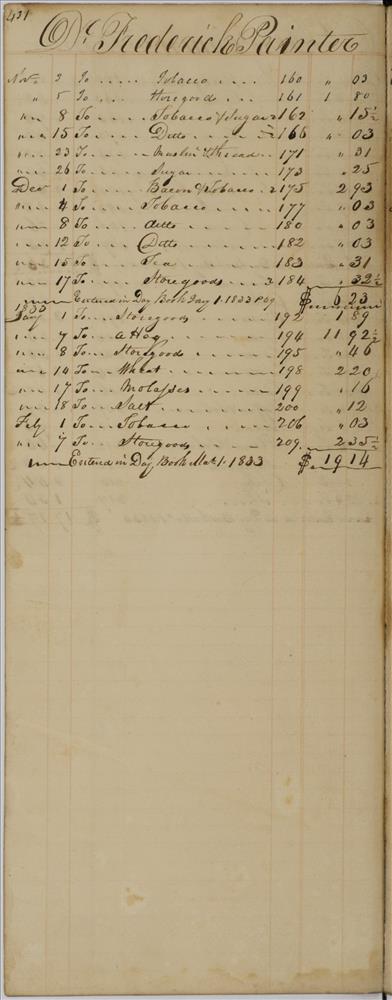 431
Dr. Frederick Painter
Novr 3 To Tobacco 160 " 03
" 5 To Storegoods 161 1 80
" 8 To Tobacco & Sugar 2 162 " 15½
" 15 To Ditto 2 166 " 03
" 23 To Muslin & thread 171 " 31
" 26 To Sugar 173 " 25
Decr 1 To Bacon & Tobacco 2 175 2 93
" 4 To Tobacco 177 " 03
" 8 To ditto 180 " 03
" 12 To Ditto 182 " 03
" 15 To Tea 183 " 31
" 17 To Storegoods 3 184 " 32½
Entered in Day Book Jany 1. 1833 Pag $ 6 23
1833
Jany 1 To Storegoods 192 1 89
" 7 To a Hog 194 11 92½
" 8 To Storegoods 195 " 46
" 14 To Wheat 198 2 20
" 17 To Molasses 199 " 16
" 18 To Salt 200 " 12
Feby 1 To Tobacco 206 " 03
" 7 To Storegoods 209 2 35½
Entered in Day Book Mch 1. 1833 $ 19 14